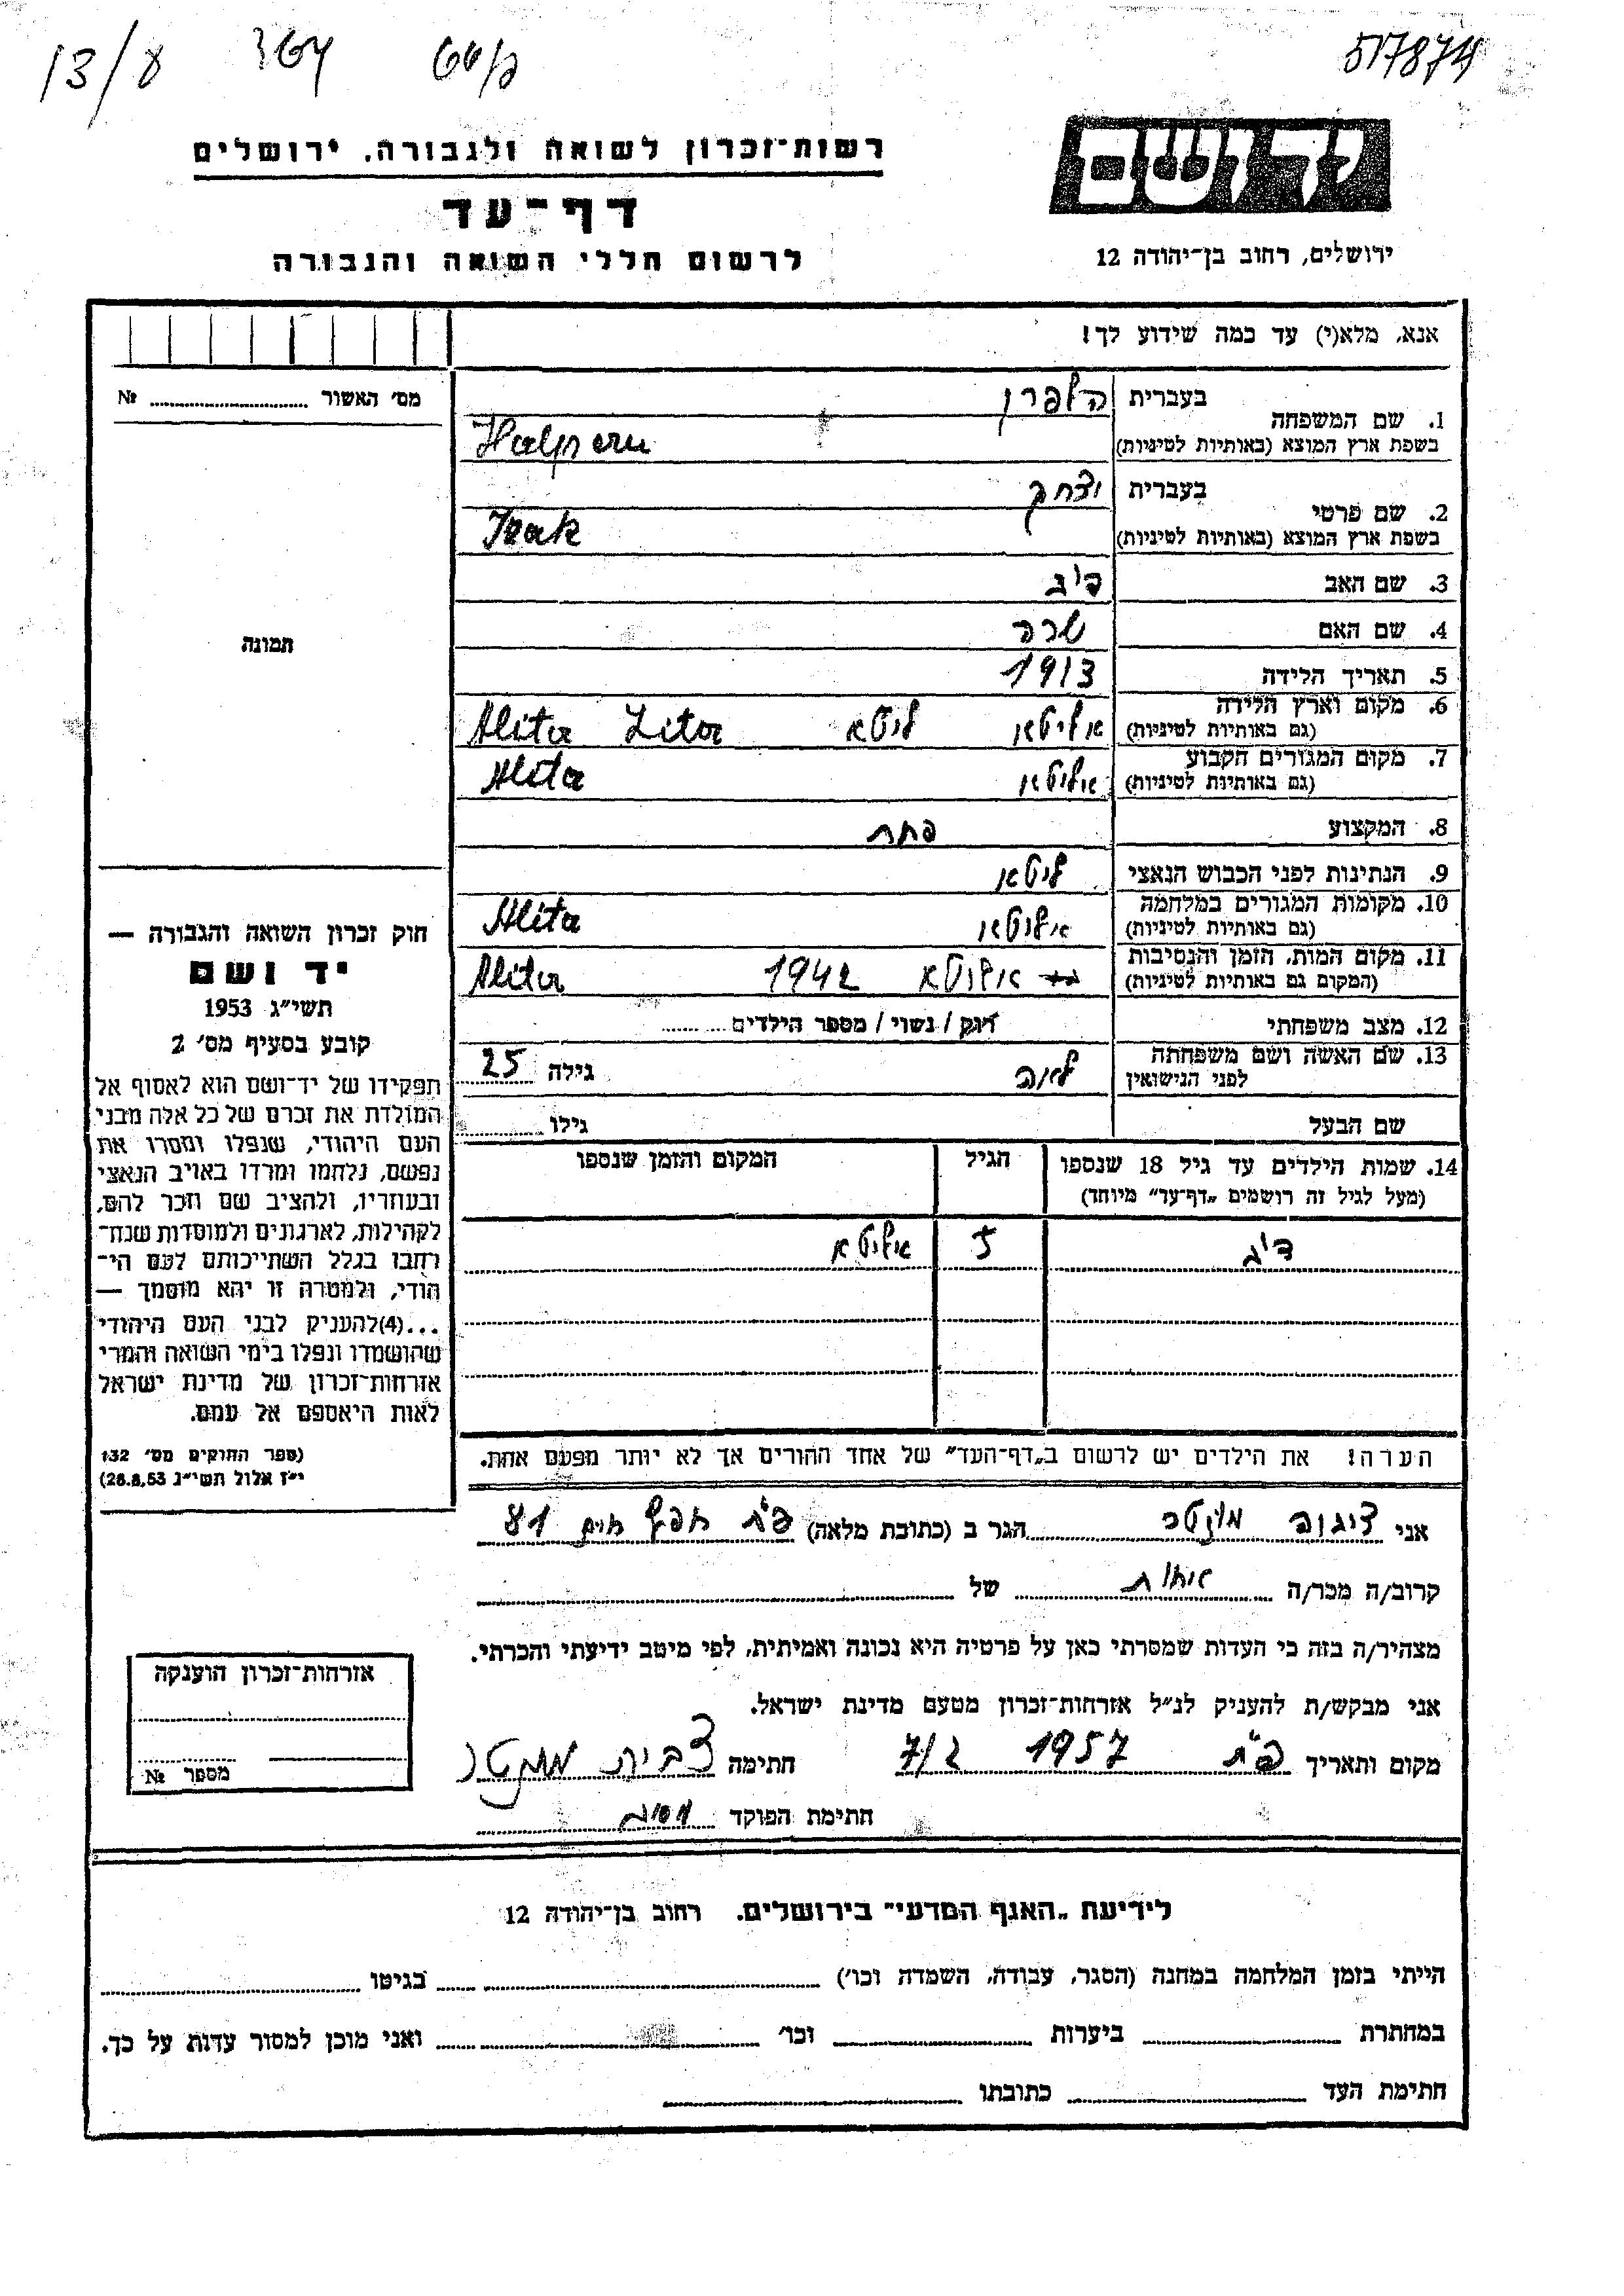 13/8
517874
רשות־זכרון לשואה ולגבורה, ירושלים
דף־עד
לרשום חללי השואה והגבורה
יד ושם
ירושלים, רחוב בן־יהודה 12
אנא, מלא(י) עד כמה שידוע לך!
מס׳ האשור № ........
1. שם המשפחה בעברית הלפרן
בשפת ארץ המוצא (באותיות לטיניות) Halpern
2. שם פרטי בעברית יצחק
בשפת ארץ המוצא (באותיות לטיניות) Izak
3. שם האב
4. שם האם שרה
5. תאריך הלידה 1913
6. מקום וארץ הלידה אליטא ליטא Alita Lita
(גם באותיות לטיניות)
7. מקום המגורים הקבוע אליטא Alita
(גם באותיות לטיניות)
8. המקצוע פחח
9. הנתינות לפני הכבוש הנאצי ליטא
10. מקומות המגורים במלחמה אליטא Alita
(גם באותיות לטיניות)
11. מקום המות, הזמן והנסיבות אליטא 1942 Alita
(המקום גם באותיות לטיניות)
12. מצב משפחתי רווק / נשוי / מספר הילדים ........
13. שם האשה ושם משפחתה לאה גילה 25
לפני הנישואין
שם הבעל גילו ........
14. שמות הילדים עד גיל 18 שנספו הגיל המקום והזמן שנספו
(מעל לגיל זה רושמים „דף־עד״ מיוחד)
5 אליטא
הערה! את הילדים יש לרשום ב„דף־העד״ של אחד ההורים אך לא יותר מפעם אחת.
תמונה
חוק זכרון השואה והגבורה —
יד ושם
תשי״ג 1953
קובע בסעיף מס׳ 2
תפקידו של יד־ושם הוא לאסוף אל
המולדת את זכרם של כל אלה מבני
העם היהודי, שנפלו ומסרו את
נפשם, נלחמו ומרדו באויב הנאצי
ובעוזריו, ולהציב שם וזכר להם,
לקהילות, לארגונים ולמוסדות שנח־
רחבו בגלל השתייכותם לעם הי־
הודי, ולמטרה זו יהא מוסמך —
...(4)להעניק לבני העם היהודי
שהושמדו ונפלו בימי השואה והמרי
אזרחות־זכרון של מדינת ישראל
לאות היאספם אל עמם.
(ספר החוקים מס׳ 132
י״ז אלול תשי״ג 28.8.53)
אני הגר ב (כתובת מלאה) פ״ת חפץ חיים 81
קרוב/ה מכר/ה אחות של ........
מצהיר/ה בזה כי העדות שמסרתי כאן על פרטיה היא נכונה ואמיתית, לפי מיטב ידיעתי והכרתי.
אני מבקש/ת להעניק לנ״ל אזרחות־זכרון מטעם מדינת ישראל.
מקום ותאריך פ״ת 1957 7/2 חתימה
חתימת הפוקד
אזרחות־זכרון הוענקה
מספר №
לידיעת „האגף המדעי״ בירושלים, רחוב בן־יהודה 12
הייתי בזמן המלחמה במחנה (הסגר, עבודה, השמדה וכו׳) ........ בגיטו ........
במחתרת ........ ביערות ........ וכו׳ ........ ואני מוכן למסור עדות על כך.
חתימת העד ........ כתובתו ........